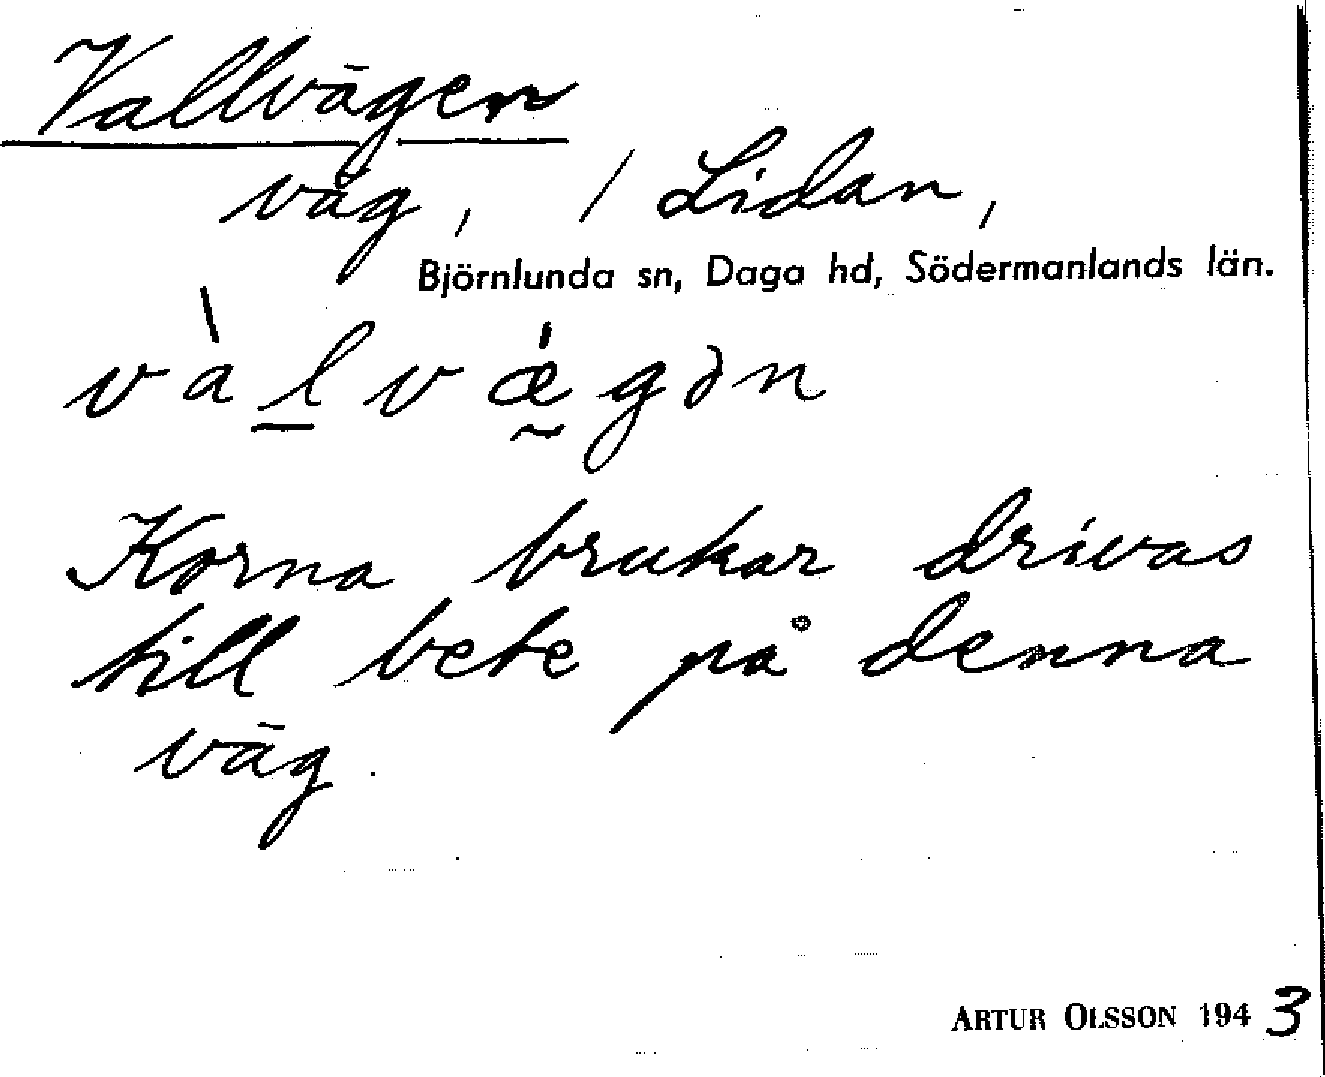 Vallvägen
väg, / Lidan,
Björnlunda sn, Daga hd, Södermanlands län.
vàl̲vǽ̰gən
Korna brukar drivas
till bete på denna
väg.
ARTUR OLSSON 1943